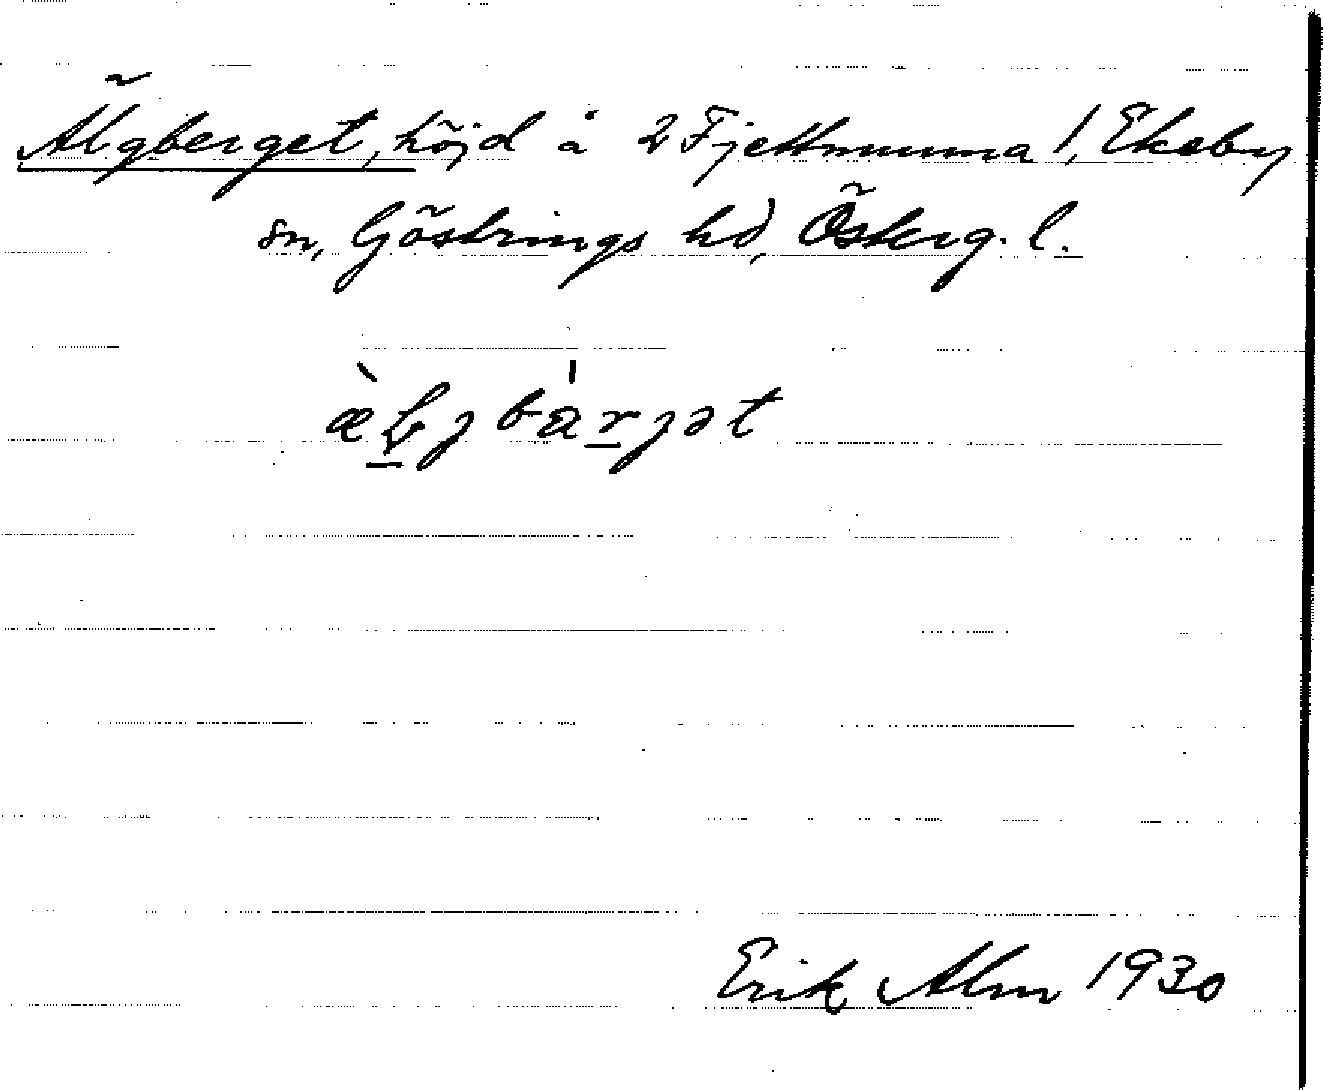 Älgberget, höjd å 2 Fjettmunna /, Ekeby
sn, Göstrings hd, Österg. l.
Erik Alm 1930